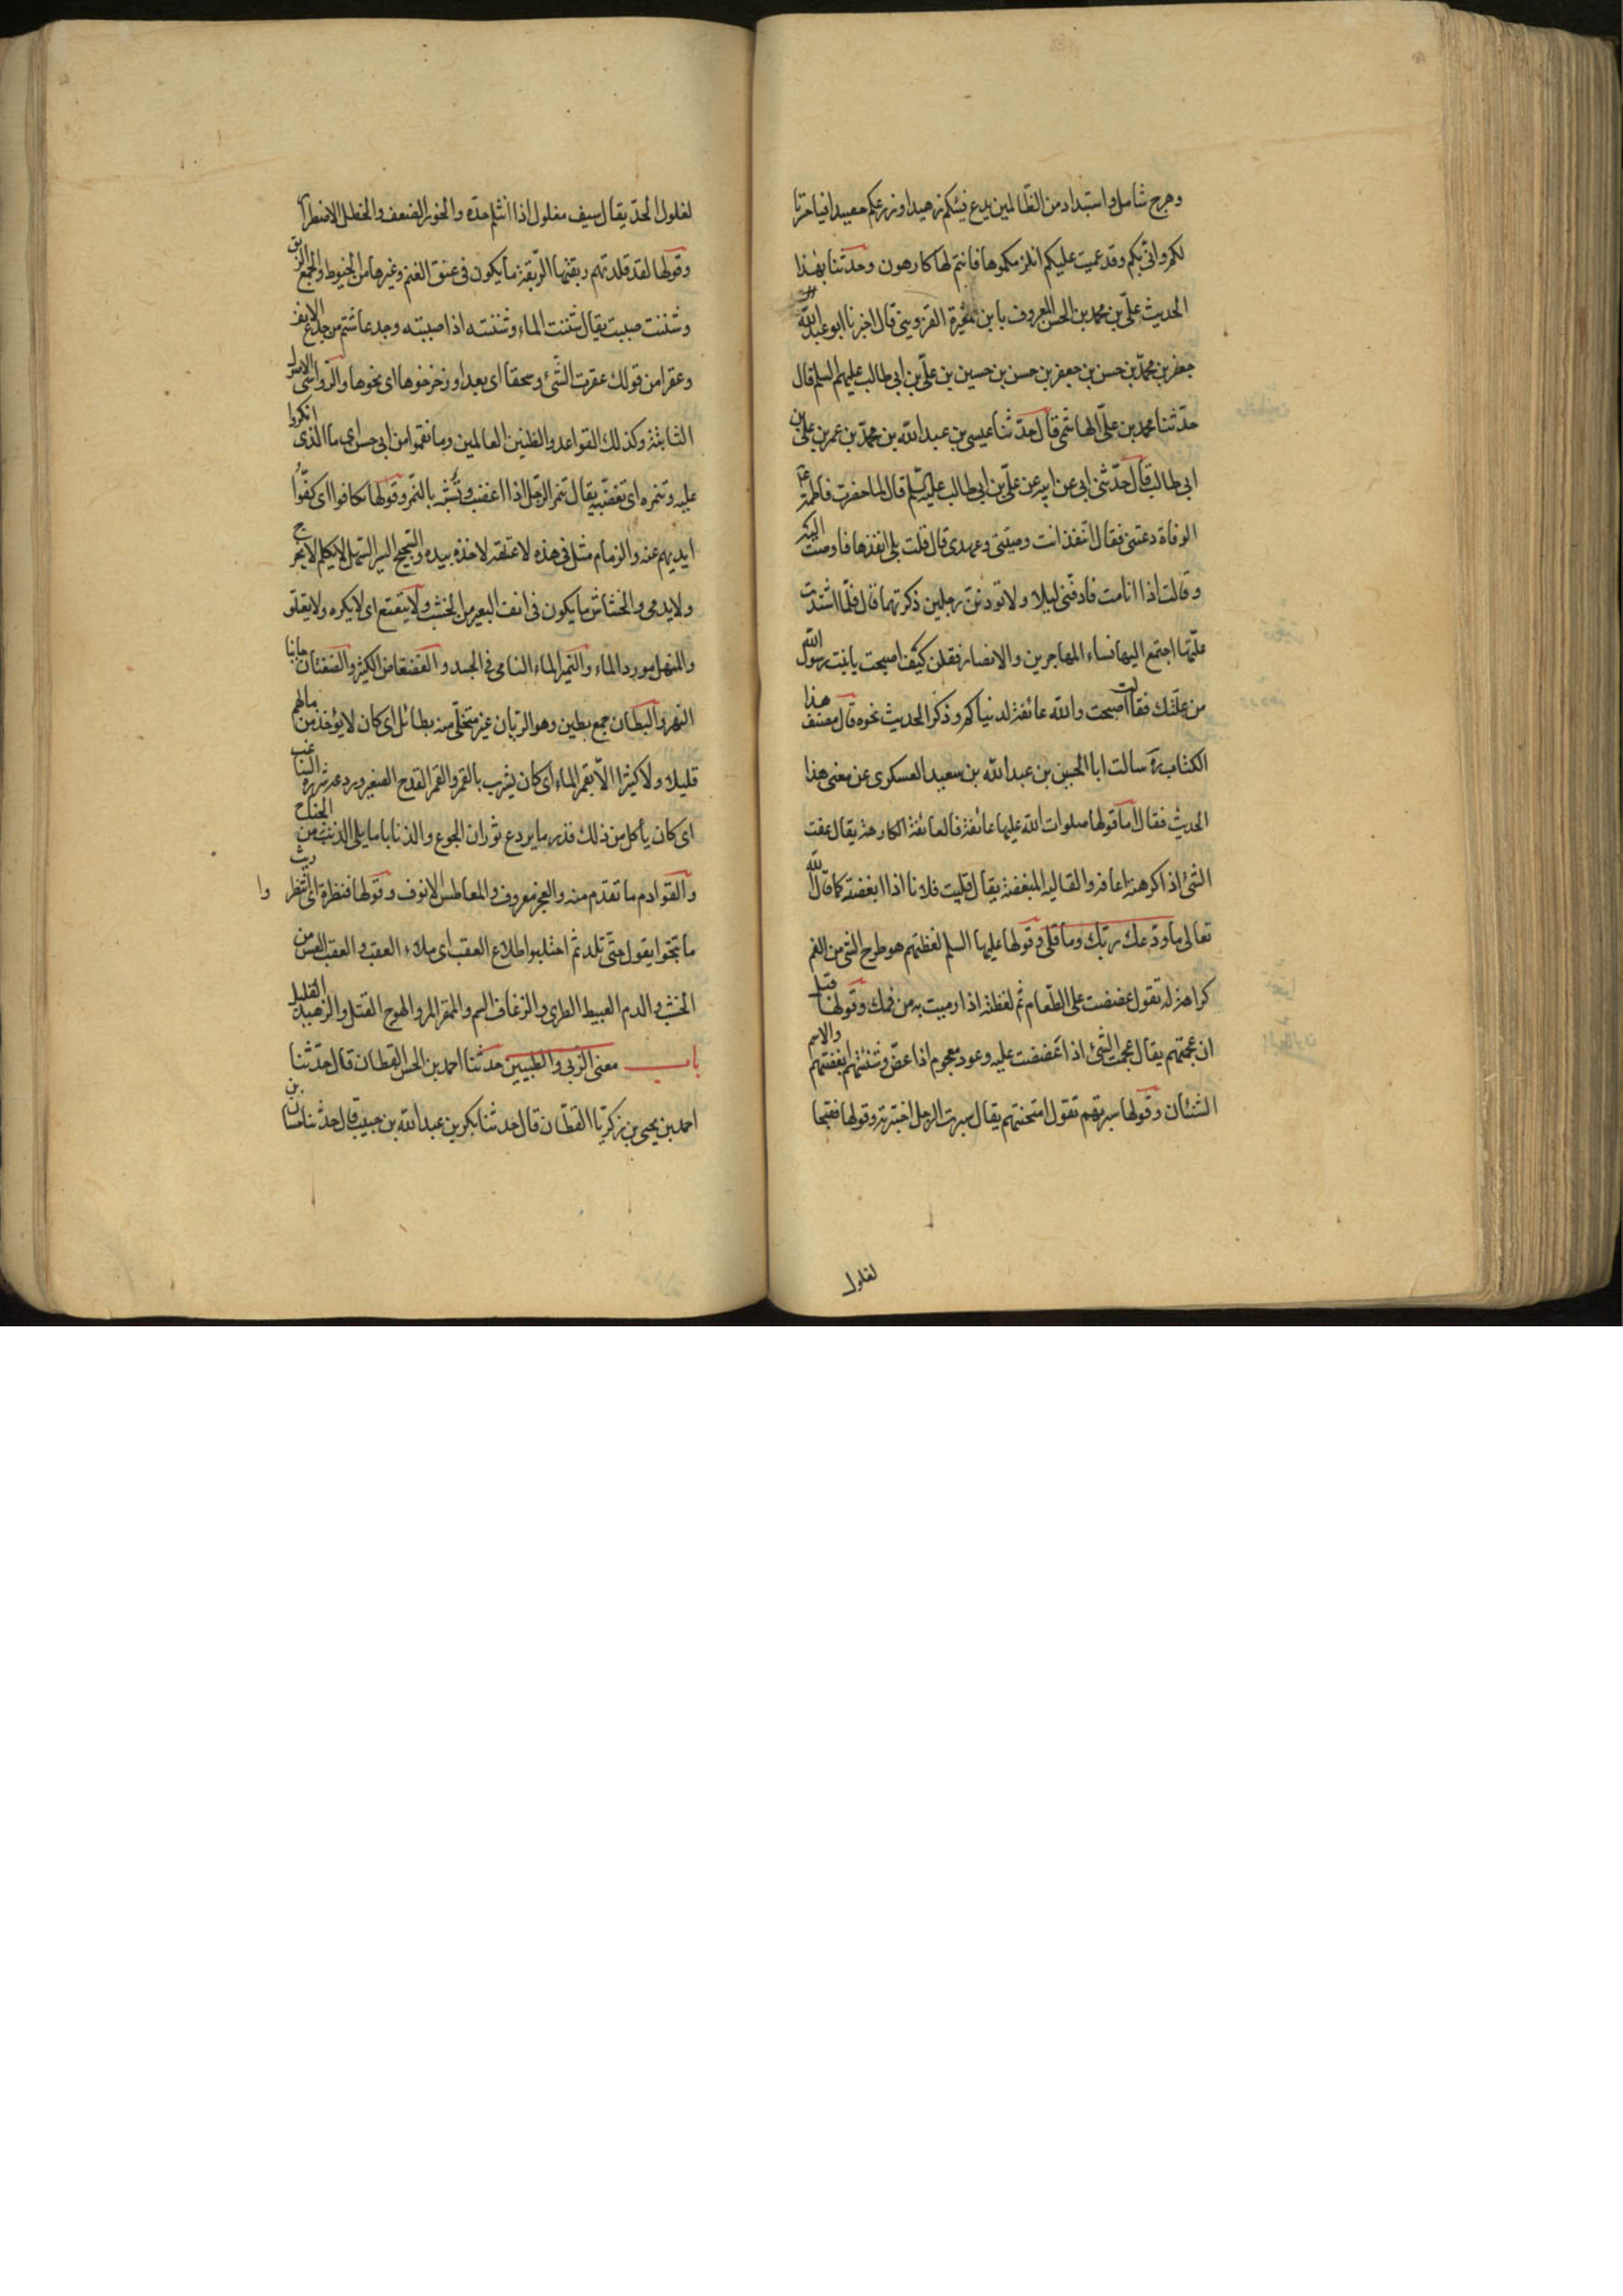 وهرج شامل واستبداد من الظالمين يدع فيئكم زهيدا وزرعكم حصيدا فياحسرتا
لكم وانى بكم وقد عميت عليكم انلزمكموها وانتم لها كارهون وحدثنا بهذا
الحديث علي بن محمد بن الحسن المعروف بابن مغيرة القزويني قال اخبرنا ابو عبد الله
جعفر بن محمد بن حسن بن جعفر بن حسن بن حسين بن علي بن ابي طالب عليهم السلم قال
حدثنا محمد بن علي الهاشمي قال حدثنا عيسى بن عبد الله بن محمد بن عمر بن علي بن
ابي طالب قال حدثني ابي عن ابيه عن علي بن ابي طالب عليه السلم قال لما حضرت فاطمة ع
الوفاة دعتني فقالت امنفذ انت وصيتي وعهدي قال قلت بلى انفذها فاوصت اليه
وقالت اذا انا مت فادفني ليلا ولا تؤذنن رجلين ذكرتهما قال فلما اشتدت
علتها اجتمع اليها نساء المهاجرين والانصار فقلن كيف اصبحت يا بنت رسول الله
من علتك فقالت اصبحت والله عائفة لدنياكم وذكر الحديث نحوه قال مصنف هذا
الكتاب ره سالت ابا الحسين بن عبد الله بن سعيد العسكرى عن معنى هذا
الحديث فقال اما قولها صلوات الله عليها عائفة فالعائفة الكارهة يقال عفت
الشئ اذا كرهته اعافه والقاليه المبغضة يقال قليت فلانا اذا ابغضته كما قال الله
تعالى ما ودعك ربك وما قلى وقولها عليها السلم لفظتهم هو طرح الشئ من الفم
كراهة له تقول عضضت على الطعام ثم لفظته اذا رميت به من فمك وقولها قبل
ان عجمتهم يقال عجمت الشئ اذا عضضت عليه وعود معجوم اذا عض وشنئتهم ابغضتهم والاسم
الشنئان وقولها سبرتهم تقول امتحنتهم يقال سبرت الرجل اختبرته وقولها فقبحا
لفلول
لفلول الحد يقال سيف مفلول اذا انثلم حده والخور الضعف والخطل الاضطراب
وقولها لقد قلدتهم ربقتها الربقة ما يكون في عنق الغنم وغيرها من الخيوط والجمع الربق
وشننت صببت يقال شننت الماء وشننته اذا صببته وجدعا شتم من جدع الانف
وعقرا من قولك عقرت الشئ وسحقا اى بعدا وزحزحوها اى نحوها والرواسى الاصول
الثابتة وكذلك القواعد والطبين العالمين وما نقموا من ابي حسن اى ما الذى انكروا
عليه وتنمره اى تغضبه يقال تنمر الرجل اذا غضب وتشبه بالنمر وقولها تكافوا اى كفوا
ايديهم عنه والزمام مثل في هذه لاعتلقه لاخذه بيده والسجح السير السهل لا يكلم لا يجرح
ولا يدمى والخشاش ما يكون في انف البعير من الخشب ولا يتعتع اى لا يكره ولا يقلق
والمنهل مورد الماء والنمير الماء النامى في الجسد والفضفاض الكثير والضفتان جانبا
النهر والبطان جمع بطين وهو الريان غير متحلى منه بطائل اى كان لا يؤخذ من مالهم
قليلا ولا كثيرا الا بغمر الماء اى كان يشرب بالغمر والغمر القدح الصغير وردعه شرره الساغب
اى كان ياكل من ذلك قدر ما يردع ثوران الجوع والذنابا ما يلى الذنب من الجناح
والقوادم ما تقدم منه والعجز معروف والمعاطس الانوف وقولها فنظرة ريث اى انتظروا
ما تنتجوا يقول حتى تلد ثم احتلبوا طلاع القعب اى ملاء القعب والقعب العس من
الخشب والدم العبيط الطرى والزعاف السم والممقر المر والهرج القتل والزهيد القليل
باب معنى الزبى والطبيين حدثنا احمد بن الحسن القطان قال حدثنا
احمد بن يحيى بن زكريا القطان قال حدثنا بكر بن عبد الله بن حبيب قال حدثنا حسان بن